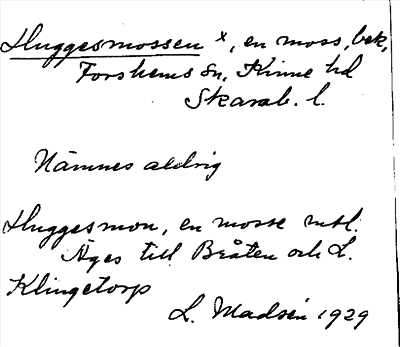 Huggesmossen x, en moss, bek,
Forshems sn, Kinne hd
Skarab. l.
Nämnes aldrig
Huggesmon, en mosse mtl.
Äges till Bråten och L.
Klingetorp
L. Madsén 1929